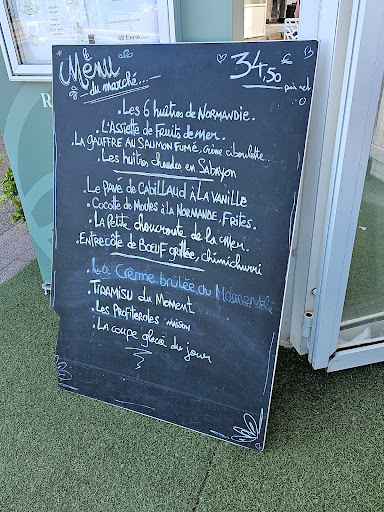 Menu
du marché...
34.50 €
. Les 6 huîtres de NORMANDIE.
. L'ASSIETTE de FRUITS de MER.
. LA GAUFFRE AU SAUMON FUMÉ, crème ciboulette.
. Les huîtres chaudes en SABAYON
. Le PAVÉ de CABILLAUD à LA VANILLE
. Cocotte de Moules à la NORMANDE, FRITES.
. La Petite choucroute de la Mer.
. ENTRECÔTE de BOEUF grillée, chimichurri
. La Crème brûlée du Moment
. TIRAMISU du MOMENT
. Les PROFITEROLES MAISON
. La coupe glacée du jour